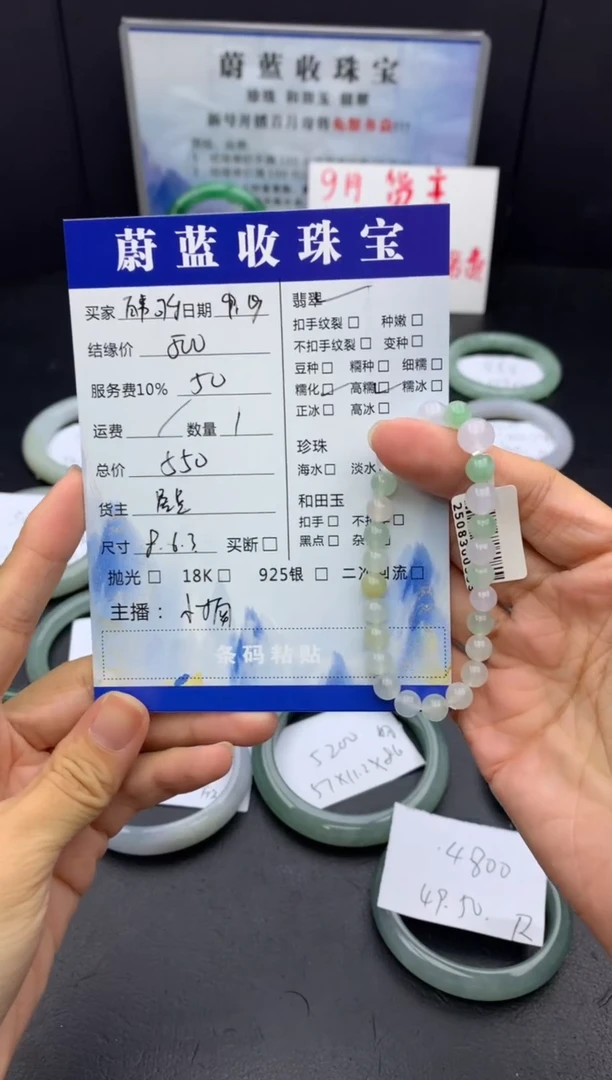 蔚蓝收珠宝
珍珠 和田玉 翡翠
9月
蔚蓝收珠宝
买家 日期 9.19
结缘价 500
服务费10% 50
运费 / 数量 1
总价 550
货主
尺寸 8.6.3 买断□
翡翠
扣手纹裂□ 种嫩□
不扣手纹裂□ 变种□
豆种□ 糯种□ 细糯□
糯化□ 高糯□ 糯冰□
正冰□ 高冰□
珍珠
海水□ 淡水
和田玉
扣手□
黑点□
抛光□ 18K□ 925银□ 二次回流□
主播：
条码粘贴
5200
57×11.2×
4800
49.50.